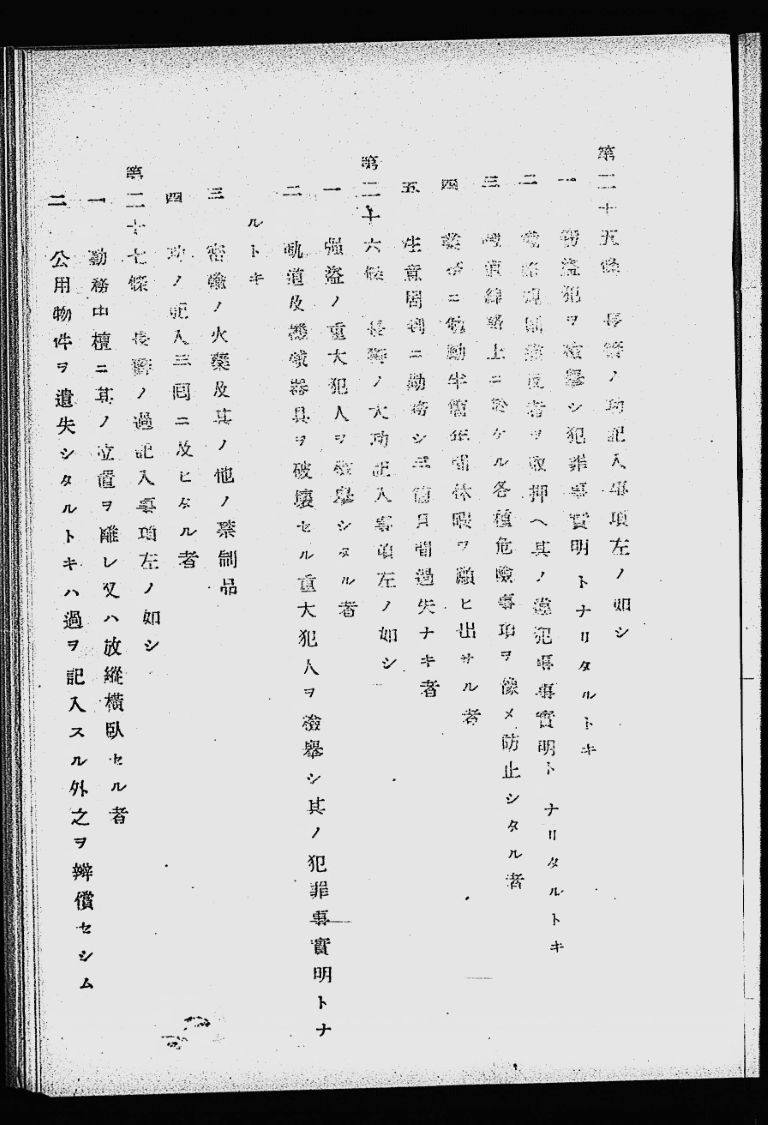 第二十五條 長警ノ功記入事項左ノ如シ
一 竊盜犯ヲ檢擧シ犯罪事實明トナリタルトキ
二 規則違反者ヲ取押ヘ其ノ違犯事實明トナリタルトキ
三 線路上ニ於ケル各種危險事項ヲ豫メ防止シタル者
四 ニ勤半箇年間休暇ヲ願ヒ出サル者
五 生意周到ニ勤務シ三箇月間過失ナキ者
第二十六條 長警ノ大功記入事項左ノ如シ
一 强盜ノ重大犯人ヲ檢擧シタル者
二 軌道及機械器具ヲ破壞セル重大犯人ヲ檢擧シ其ノ犯罪事實明トナ
ルトキ
三 密輸ノ火藥及其ノ他ノ禁制品
四 功ノ記入三回ニ及ヒタル者
第二十七條 長警ノ過記入事項左ノ如シ
一 勤務中檀ニ其ノ位置ヲ離レ又ハ放縱橫臥セル者
二 公用物件ヲ遺失シタルトキハ過ヲ記入スル外之ヲ辨償セシム